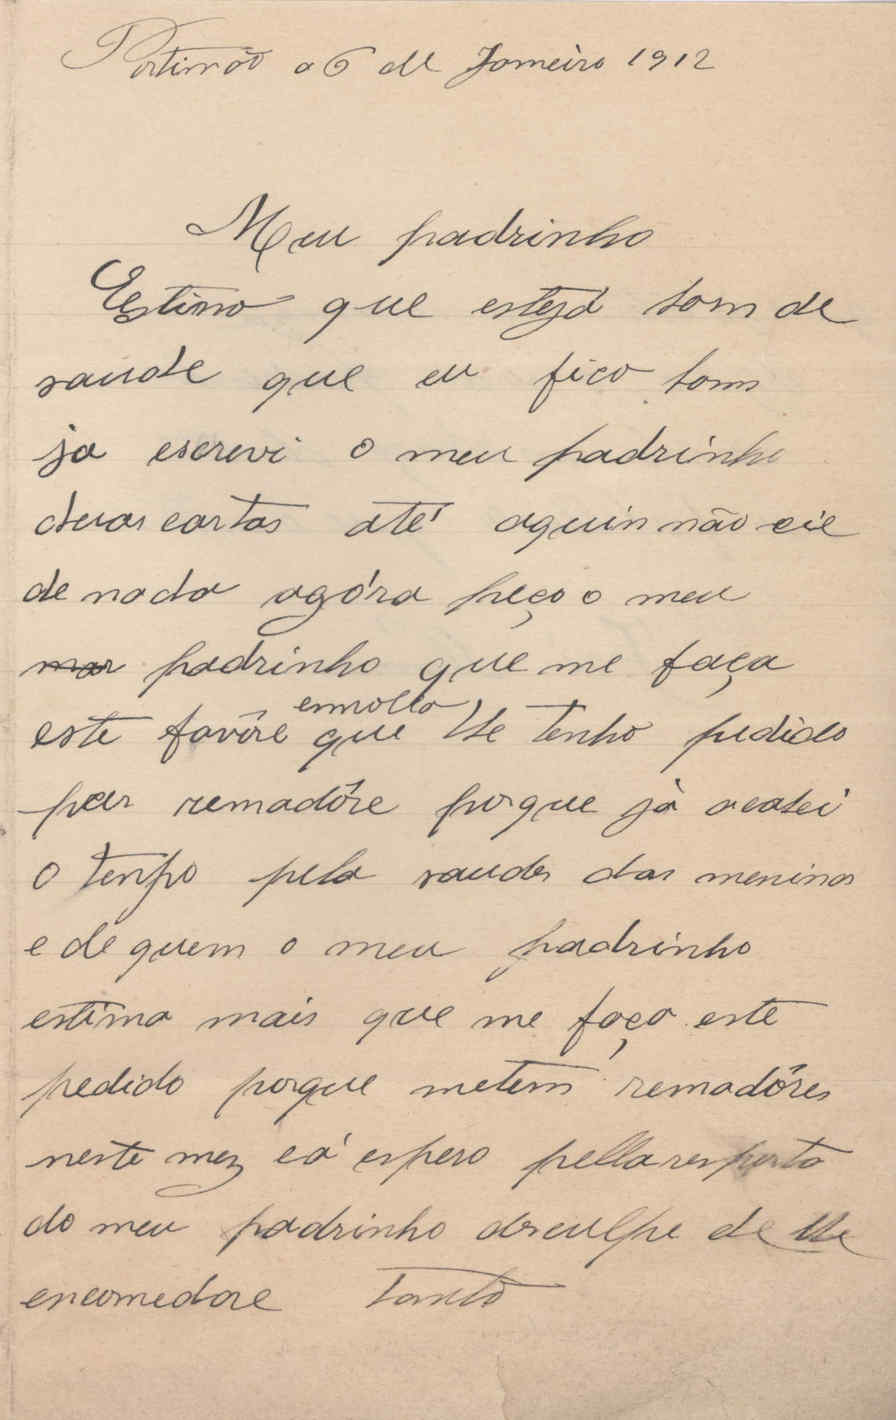 Portimão a 6 de Janeiro 1912
Meu padrinho
Estimo que estejá bom de
saude que eu fico bom
ja escrevi o meu padrinho
duas cartas até aquin não
de nada agóra peço o meu
padrinho que me faça
este favôre que lhe tenho pedido
par remadôre porque já acabei
o tenpo pela saudes das meninas
e de quem o meu padrinho
estima mais que me faça este
pedido porque metem remadôres
neste mez cá espero pella resposta
do meu padrinho desculpe de lhe
encomedare tanto